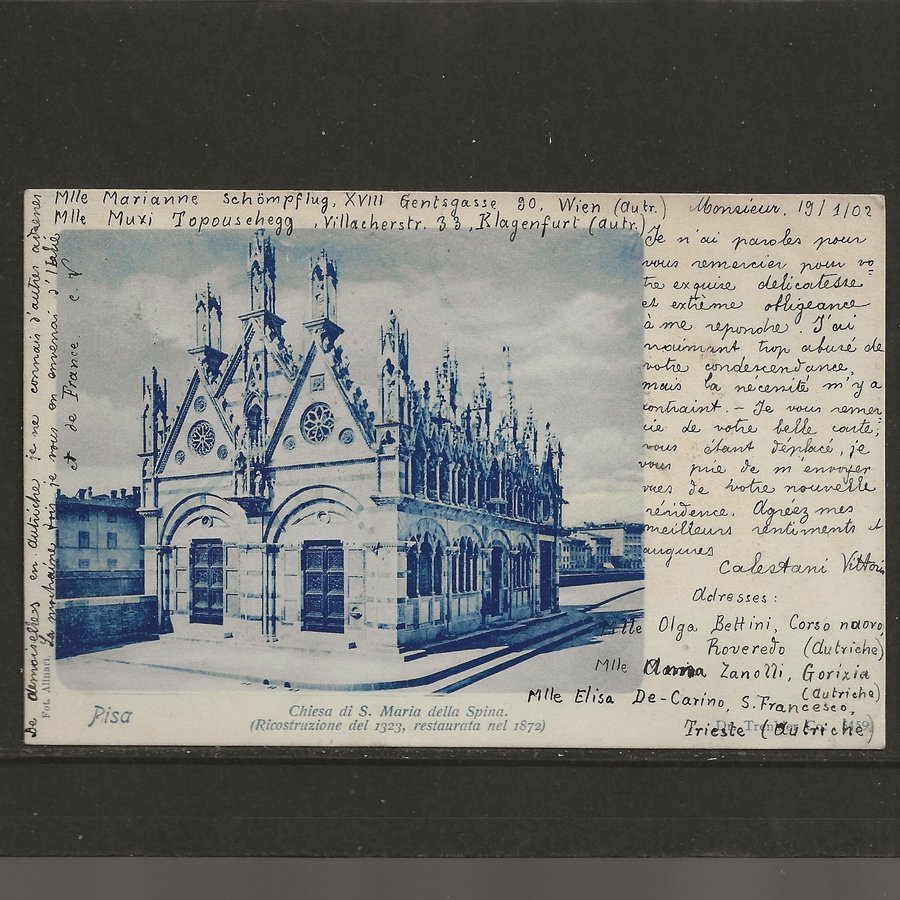 Mlle Marianne Schömpflug, XVIII Gentsgasse 90, Wien (Autr.)
Mlle Muxi Topouschegg, Villacherstr. 33, Klagenfurt (autr.)
Monsieur, 19/1/02
Je n'ai paroles pour
vous remercier pour vo-
tre exquire délicatesse
et extième obligeance
à me repondre. J'ai
vraimant trop abusé de
votre condescendance,
mais la necessité m'y a
contraint. - Je vous remer
cie de votre belle carte;
vous étant déplacé, je
vous prie de m'envoyer
vues de votre nouvelle
résidence. Agreez mes
meilleurs sentiments et
augures
Calestani Vittorio
Adresses:
Mlle Olga Bettini, Corso nuovo,
Roveredo (Autriche)
Mlle Anna Zanolli, Gorizia
(Autriche)
Mlle Elisa De-Carino, S. Francesco,
Trieste (Autriche)
De demoiselles en autriche je ne connais d'autres adresses
La prochaine fois je vous en envenai d'Italie
et de France. C. V
Fot. Alinari.
Pisa
Chiesa di S. Maria della Spina.
(Ricostruzione del 1323, restaurata nel 1872)
Dr. Trenkler Co.